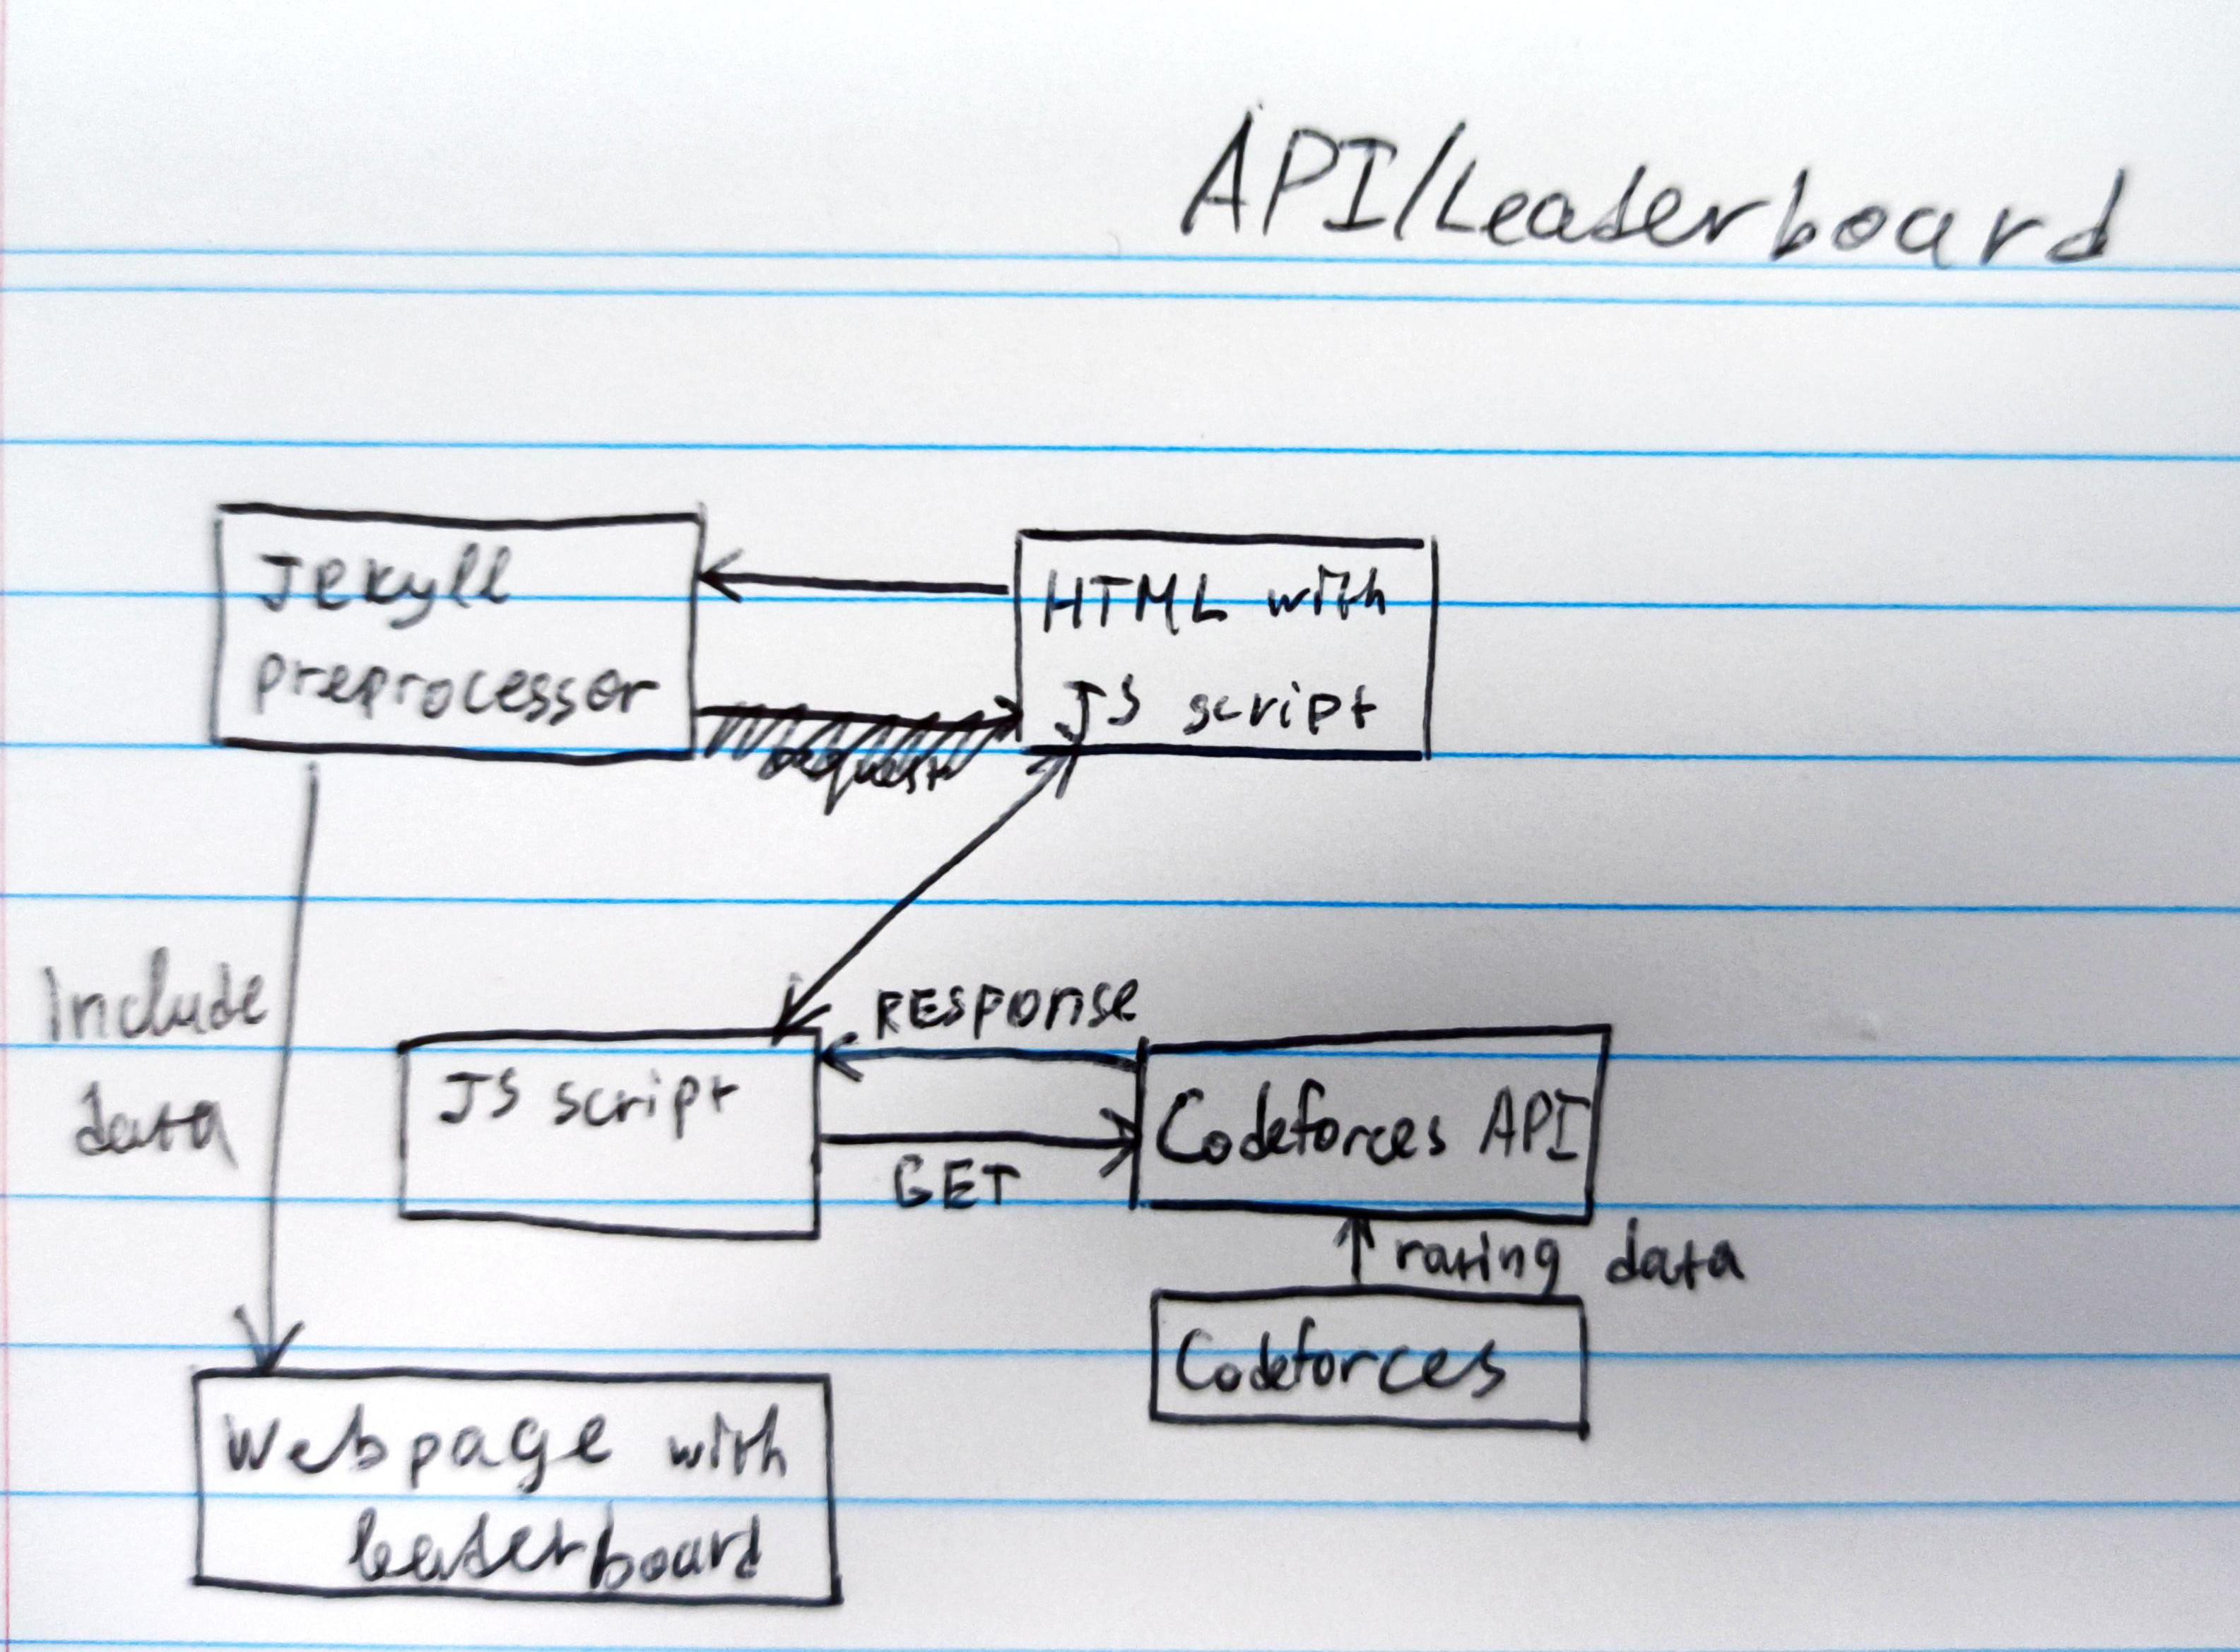 API/Leaderboard
Jekyll
preprocessor
HTML with
JS script
request
Include
data
RESPONSE
JS script
GET
Codeforces API
rating data
Codeforces
Webpage with
leaderboard